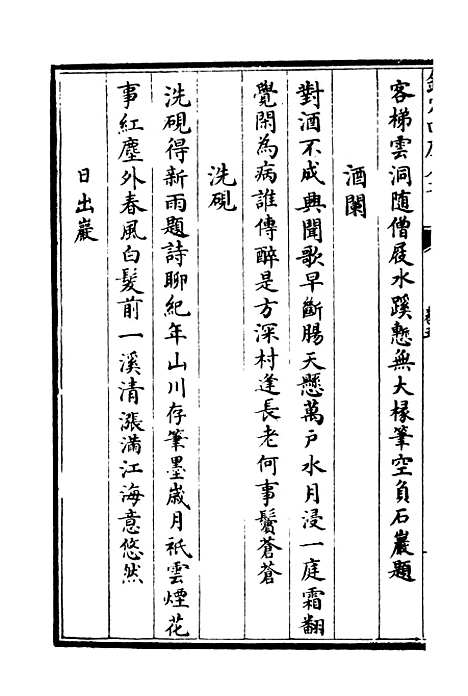 客梯雲洞隨僧屐水蹊慙無大椽筆空負石巖題
酒闌
對酒不成興聞歌早斷腸天懸萬戶水月浸一庭霜翻
覺閑為病誰傳醉是方深村逢長老何事鬢蒼蒼
洗硯
洗硯得新雨題詩聊紀年山川存筆墨歲月祇雲煙花
事紅塵外春風白髮前一溪清漲滿江海意悠然
日出巖